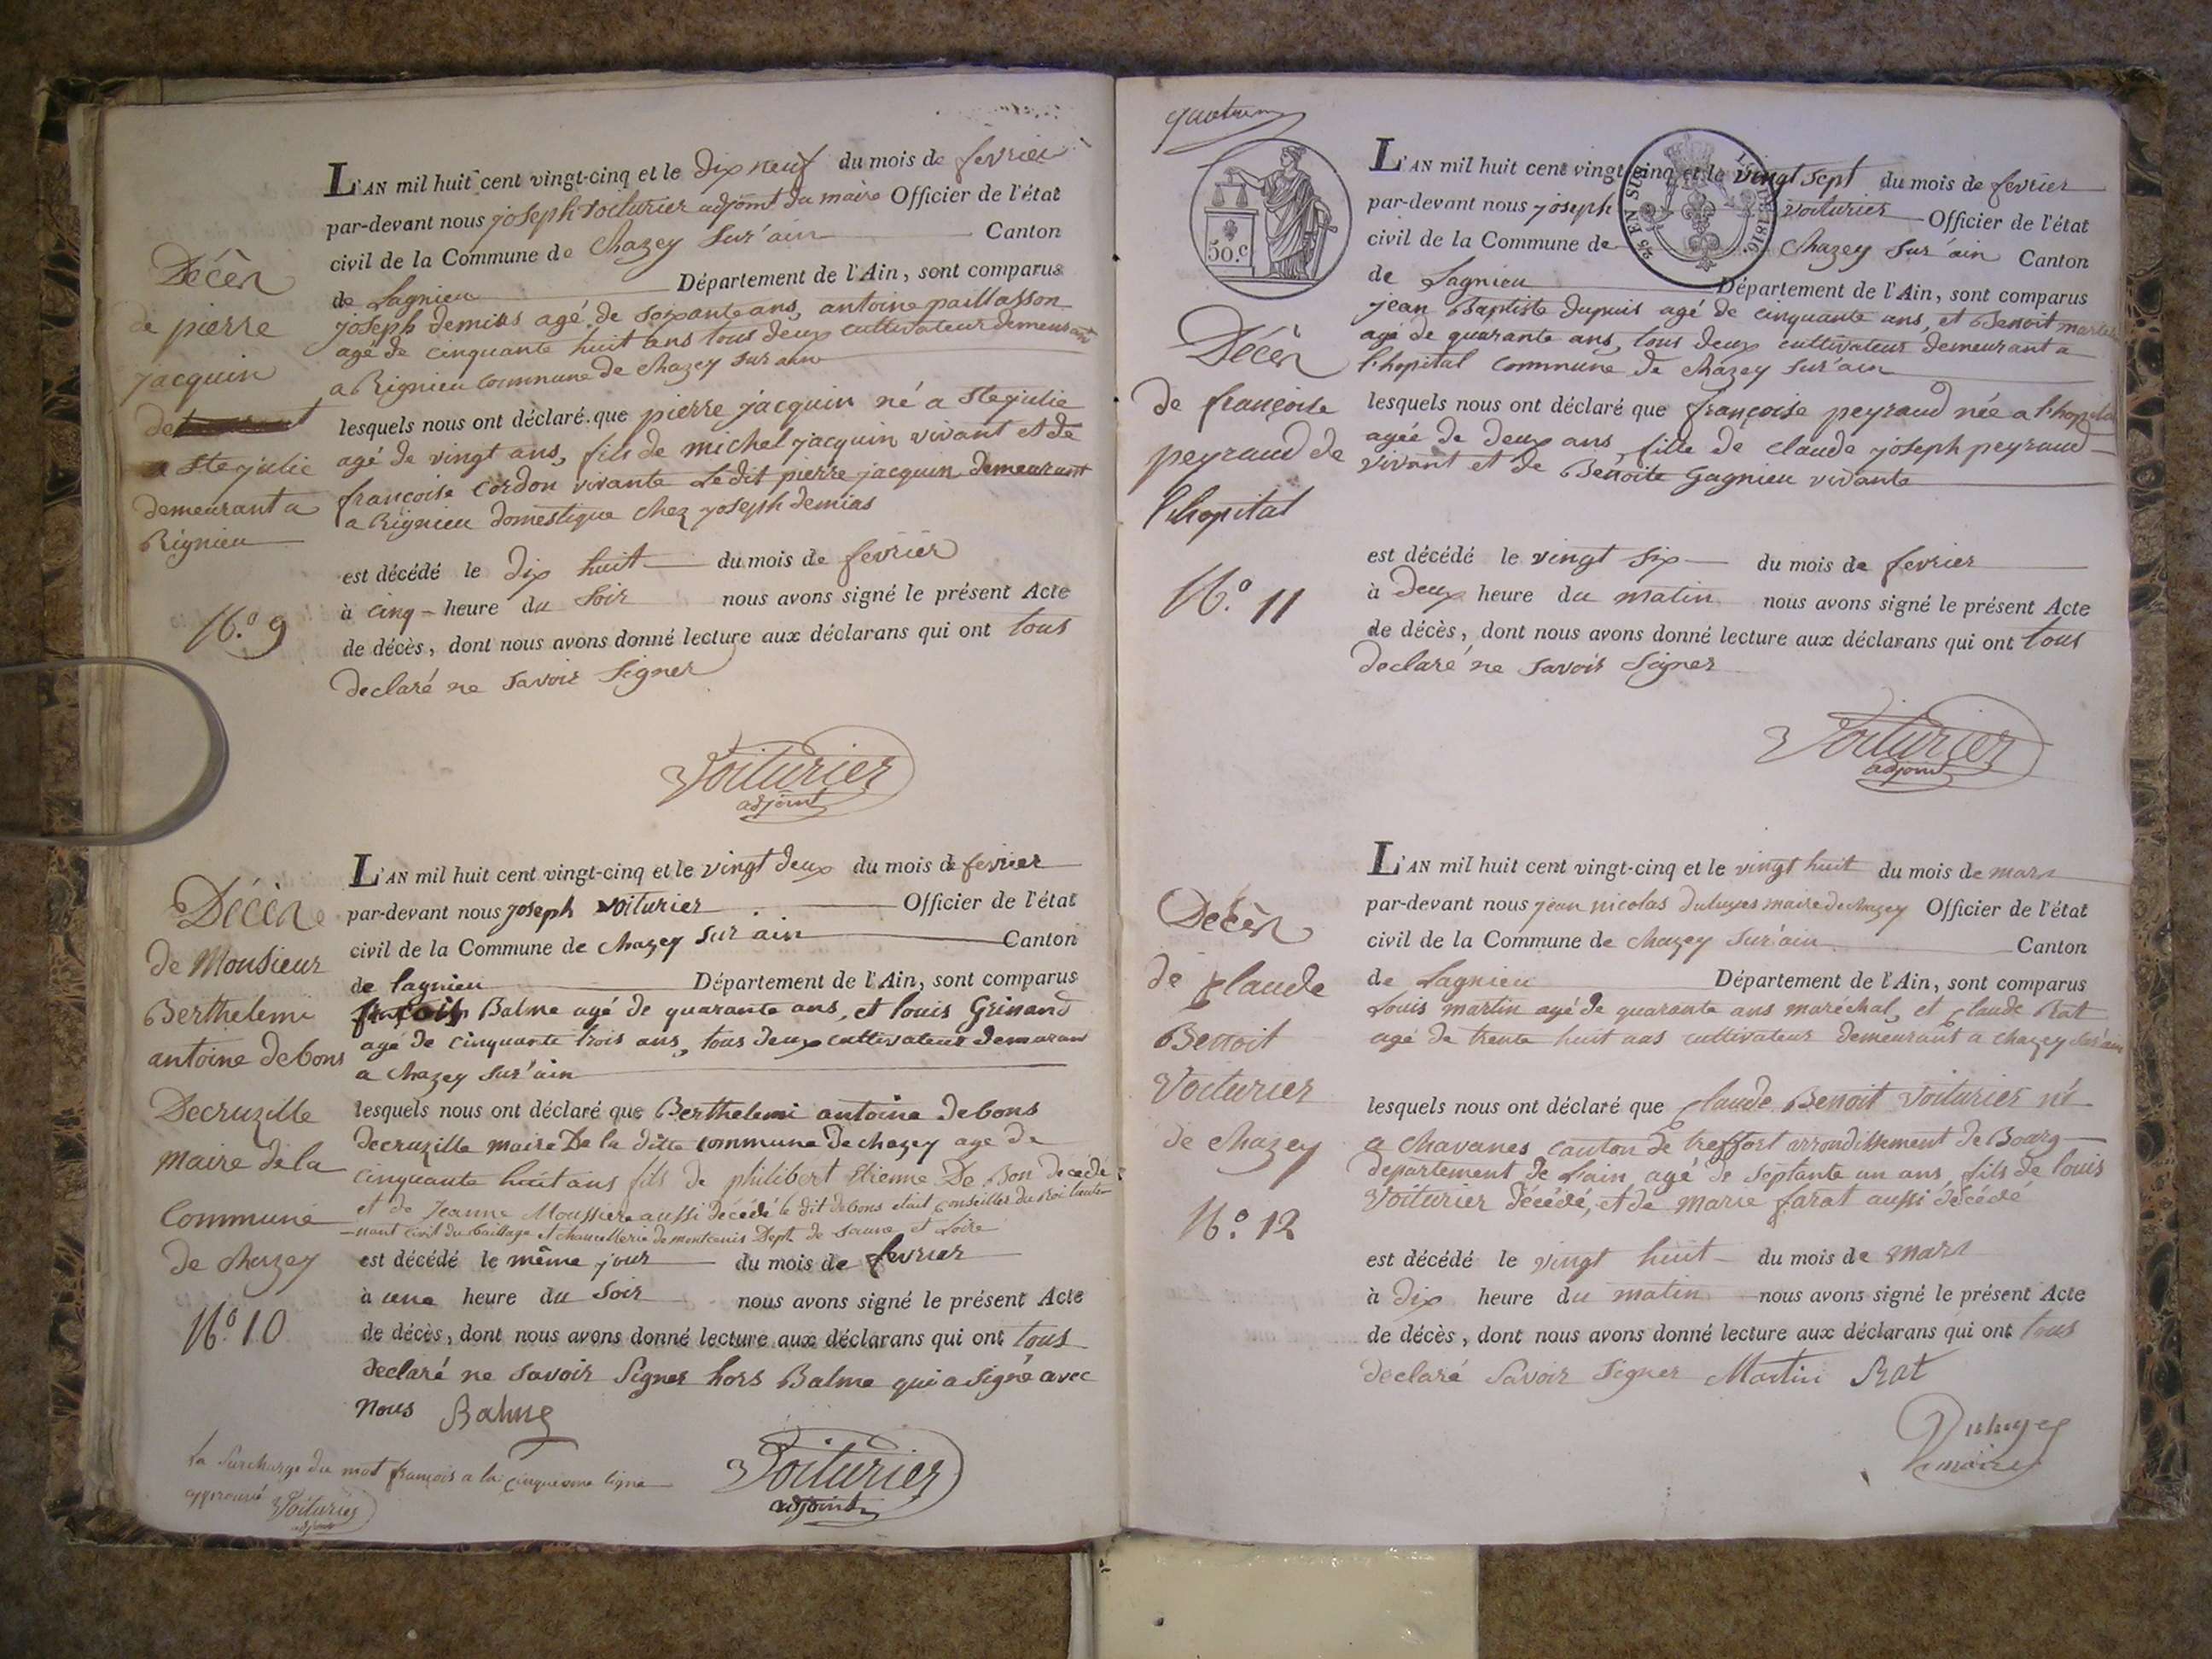 Décès
de pierre
jacquin
de
a Ste julie
demeurant a
Rignieu
N.° 9
L'AN mil huit cent vingt-cinq et le dix neuf du mois de fevrier
par-devant nous joseph Voiturier adjoint du maire Officier de l'état
civil de la Commune de Chazey Sur'ain Canton
de Lagnieu Département de l'Ain, sont comparus
joseph demias agé de soixante ans, antoine paillasson
agé de cinquante huit ans tous deux cultivateur demeurant
a Rignieu commune de Chazey sur ain
lesquels nous ont déclaré que pierre jacquin né a Ste julie
agé de vingt ans, fils de michel jacquin vivant et de
françoise Cordon vivante Ledit pierre jacquin demeurant
a Rignieu domestique chez joseph demias
est décédé le dix huit du mois de fevrier
à cinq heure du Soir nous avons signé le présent Acte
de décès, dont nous avons donné lecture aux déclarans qui ont tous
declaré ne Savoir Signer
Voiturier
adjoint
Décès
de Monsieur
Berthelemi
antoine debons
Decruzille
maire de la
Commune
de Chazey
N.° 10
L'AN mil huit cent vingt-cinq et le vingt deux du mois de fevrier
par-devant nous joseph Voiturier Officier de l'état
civil de la Commune de Chazey Sur ain Canton
de lagnieu Département de l'Ain, sont comparus
françois Balme agé de quarante ans, et louis Grinand
agé de cinquante trois ans, tous deux cultivateur demeran
a Chazey Sur'ain
lesquels nous ont déclaré que Berthelemi antoine debons
decruzille maire De la ditte commune De chazey age de
cinquante huit ans fils de philibert Etienne De Bon decédé
et de Jeanne Moussiere aussi decédé le dit debons etait conseiller du Roi lieute-
-nant civil du bailliage et chancellerie de montcenis Dept. de Saone et Loire
est décédé le même jour du mois de fevrier
à une heure du Soir nous avons signé le présent Acte
de décès, dont nous avons donné lecture aux déclarans qui ont tous
declaré ne savoir Signer hors Balme qui a signé avec
nous Balme
la Surcharge du mot françois a la cinquieme ligne
approuvé Voiturier
adjoint
Voiturier
adjoint
50.c
25 EN SUS
DE 1816.
Décès
de françoise
peyraud de
l'hopital
N.° 11
L'AN mil huit cent vingt-cinq et le vingt Sept du mois de fevrier
par-devant nous joseph Voiturier Officier de l'état
civil de la Commune de Chazey Sur'ain Canton
de Lagnieu Département de l'Ain, sont comparus
jean Baptiste dupuis agé de cinquante ans, et Benoit
agé de quarante ans, tous deux cultivateur demeurant a
l'hopital commune de Chazey Sur'ain
lesquels nous ont déclaré que françoise peyraud née a l'hopital
agée de deux ans, fille de claude joseph peyraud
vivant et de Benoite Gagnieu vivante
est décédé le vingt Six du mois de fevrier
à deux heure du matin nous avons signé le présent Acte
de décès, dont nous avons donné lecture aux déclarans qui ont tous
declaré ne savoir Signer
Voiturier
adjoint
Décès
de Claude
Benoit
Voiturier
de Chazey
N.° 12
L'AN mil huit cent vingt-cinq et le vingt huit du mois de mars
par-devant nous jean nicolas maire de chazey Officier de l'état
civil de la Commune de Chazey Sur'ain Canton
de Lagnieu Département de l'Ain, sont comparus
Louis martin agé de quarante ans maréchal, et Claude Rat
agé de trente huit ans cultivateur demeurant a Chazey Sur'ain
lesquels nous ont déclaré que Claude Benoit Voiturier né
a Chavanes canton de treffort arrondissement de Bourg
departement de Lain agé de Septante un ans, fils de louis
Voiturier décédé, et de marie farat aussi décédé
est décédé le vingt huit du mois de mars
à dix heure du matin nous avons signé le présent Acte
de décès, dont nous avons donné lecture aux déclarans qui ont tous
declaré Savoir Signer Martin Rat
maire